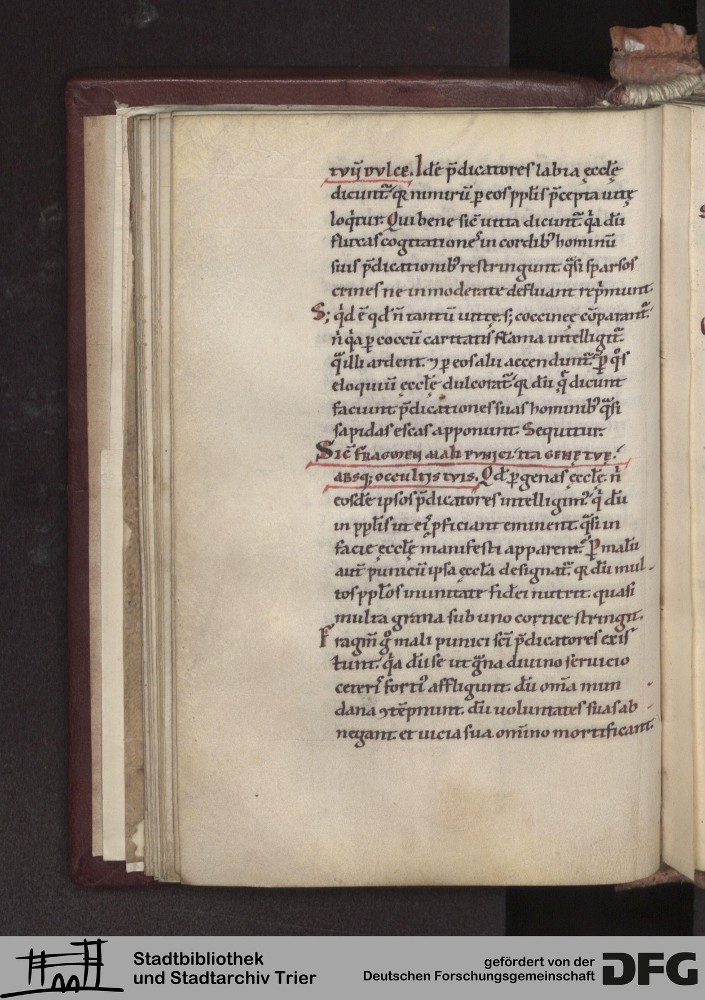 tuū dulce. Idē p̄dicatores labia ęccłę
dicunt᷑. qꝛ nimirū ꝑ eos ppłis p̄cepta uitę
loq̇tur. Qui bene sic̄ uitta dicunt᷑. q̇a dū
fluxas cogitationes in cordib᷒ hominū
suis p̄dicationib᷒ restringunt. q̇si sparsos
crines ne inmoderate defluant rep̄munt.
S; q̇d ē qd n̄ tantū uittę. s; coccinę cōparant᷑.
n̄ q̇a ꝑ coccū caritatis flāma intelligit᷑.
q̇ illi ardent. ⁊ ꝑ eos alii accendunt᷑. ꝑ q̊s
eloquiū ęccłę dulcorat᷑. qꝛ dū q̄ dicunt
faciunt p̄dicationes suas hominib᷒ q̇si
sapidas escas apponunt. Sequitur.
Sic̄ fragmen mali punici ita genę tuę.
absq; occultis tuis. Qd ꝑ genas ęccłę. n̄
eosdē ipsos p̄dicatores intelligim᷒. q̇ dū
in ppłis ut ei᷒ ꝓficiant eminent. q̇si in
facie ęccłę manifesti apparent. Ꝑ malū
aut̄ punicū ipsa ęccła designat᷑. qꝛ dū mul
tos ppłos in unitate fidei nutrit. quasi
multa grana sub uno cortice stringit.
Fragm̄ g̊ mali punici sc̄i p̄dicatores exis
tunt. q̇a dū se ut g̊na diuino seruicio
ceteri᷒ forti᷒ affligunt. dū om̄a mun
dana ꝯtēpnunt. dū uoluntates suas ab
negant. et uicia sua om̄ino mortificant.
Stadtbibliothek
und Stadtarchiv Trier
gefördert von der
Deutschen Forschungsgemeinschaft
DFG